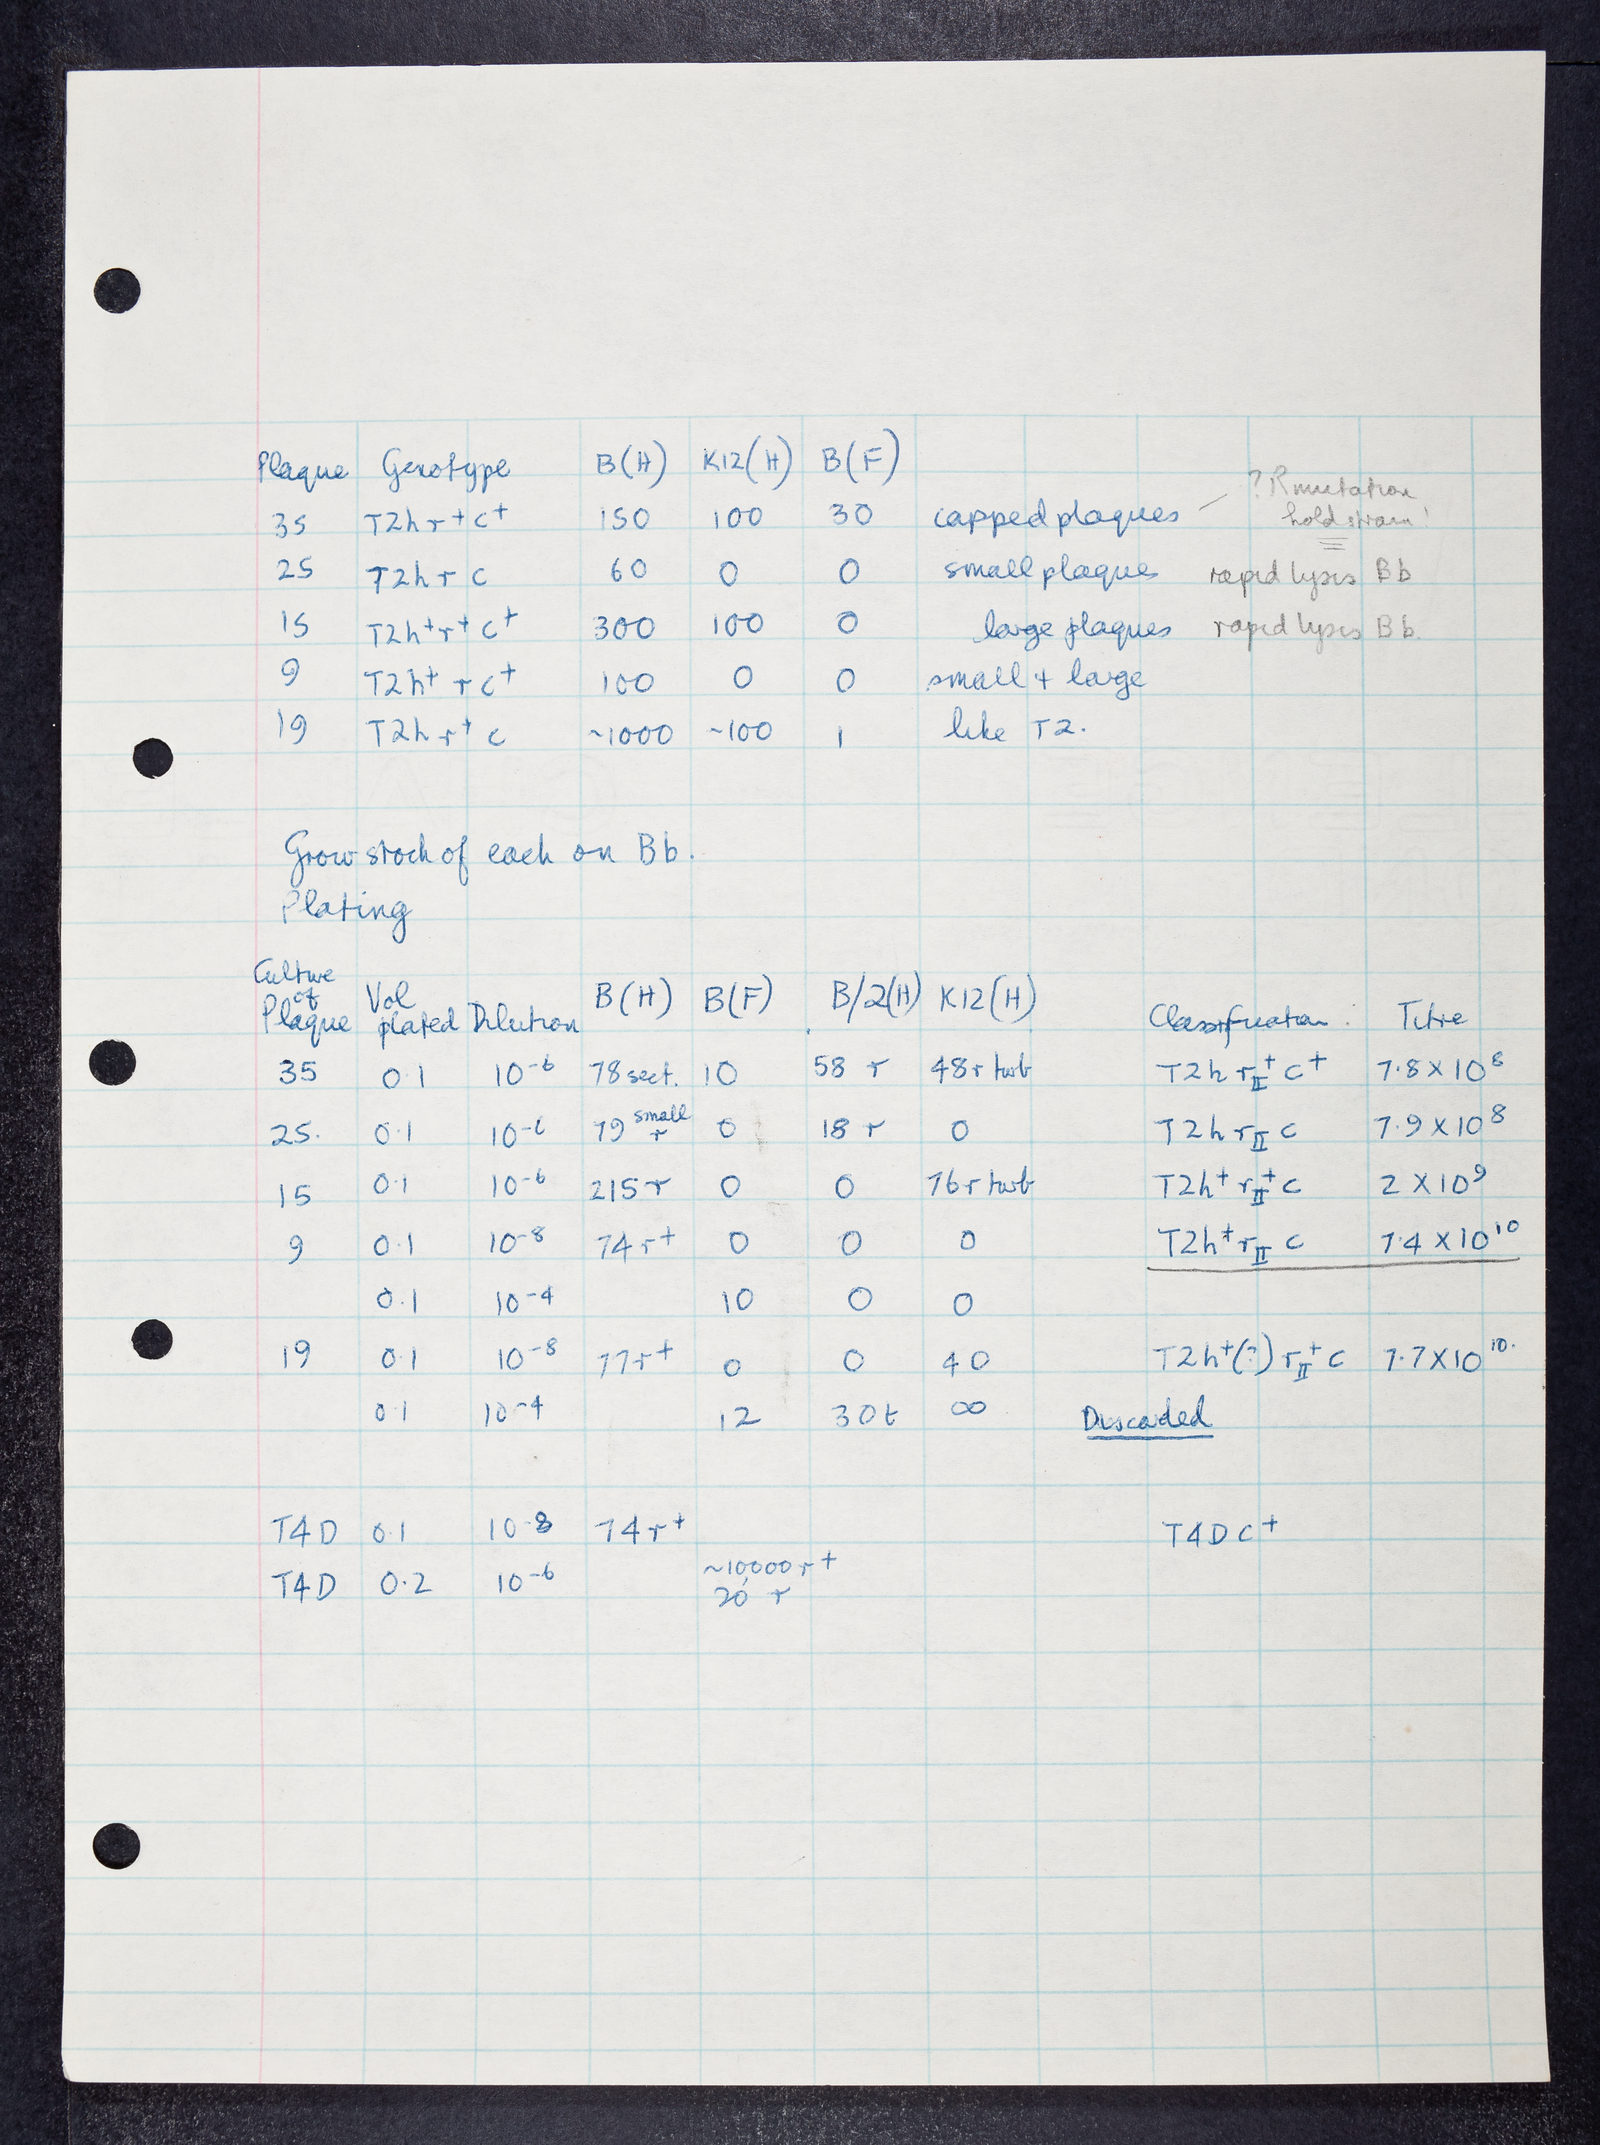 Plaque Genotype B(H) K12(H) B(F)
? R mutation
35 T2h r⁺ c⁺ 150 100 30 capped plaques hold strain!
25 T2h r c 60 0 0 small plaques rapid lysis Bb
15 T2h⁺ r⁺ c⁺ 300 100 0 large plaques rapid lysis Bb.
9 T2h⁺ r c⁺ 100 0 0 small + large
19 T2h r⁺ c ~1000 ~100 1 like T2.
Grow stock of each on Bb.
Plating
Culture of Plaque Vol plated Dilution B(H) B(F) B/2(H) K12(H) Classification Titre
35 0.1 10⁻⁶ 78 sect. 10 58 r 48 r turb T2h rII⁺ c⁺ 7.8 X 10⁸
25. 0.1 10⁻⁶ 79 small r 0 18 r 0 T2h rII c 7.9 X 10⁸
15 0.1 10⁻⁶ 215 r 0 0 76 r turb T2h⁺ rII⁺ c 2 X 10⁹
9 0.1 10⁻⁸ 74 r⁺ 0 0 0 T2h⁺ rII c 7.4 X 10¹⁰
0.1 10⁻⁴ 10 0 0
19 0.1 10⁻⁸ 77 r⁺ 0 0 40 T2h⁺(?) rII⁺ c 7.7 X 10¹⁰.
0.1 10⁻⁴ 12 30t ∞ Discarded
T4D 0.1 10⁻⁸ 74 r⁺ T4D c⁺
T4D 0.2 10⁻⁶ ~10000 r⁺
20 r